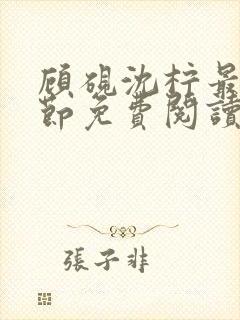 顧硯沈柠最
節免費閱讀
張子非